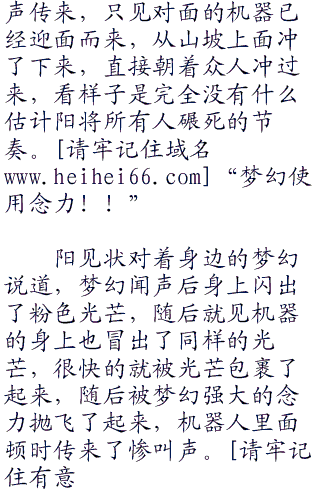 声传来，只见对面的机器已
经迎面而来，从山坡上面冲
了下来，直接朝着众人冲过
来，看样子是完全没有什么
估计阳将所有人碾死的节
奏。[请牢记住域名
www.heihei66.com]“梦幻使
用念力！！”
阳见状对着身边的梦幻
说道，梦幻闻声后身上闪出
了粉色光芒，随后就见机器
的身上也冒出了同样的光
芒，很快的就被光芒包裹了
起来，随后被梦幻强大的念
力抛飞了起来，机器人里面
顿时传来了惨叫声。[请牢记
住有意